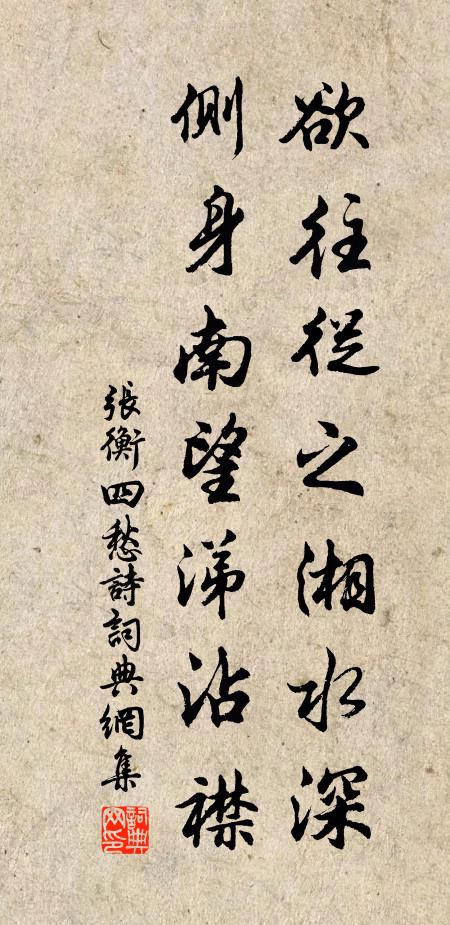 欲往從之湘水深
側身南望涕沾襟
張衡四愁詩詞典網集
詞典
网印